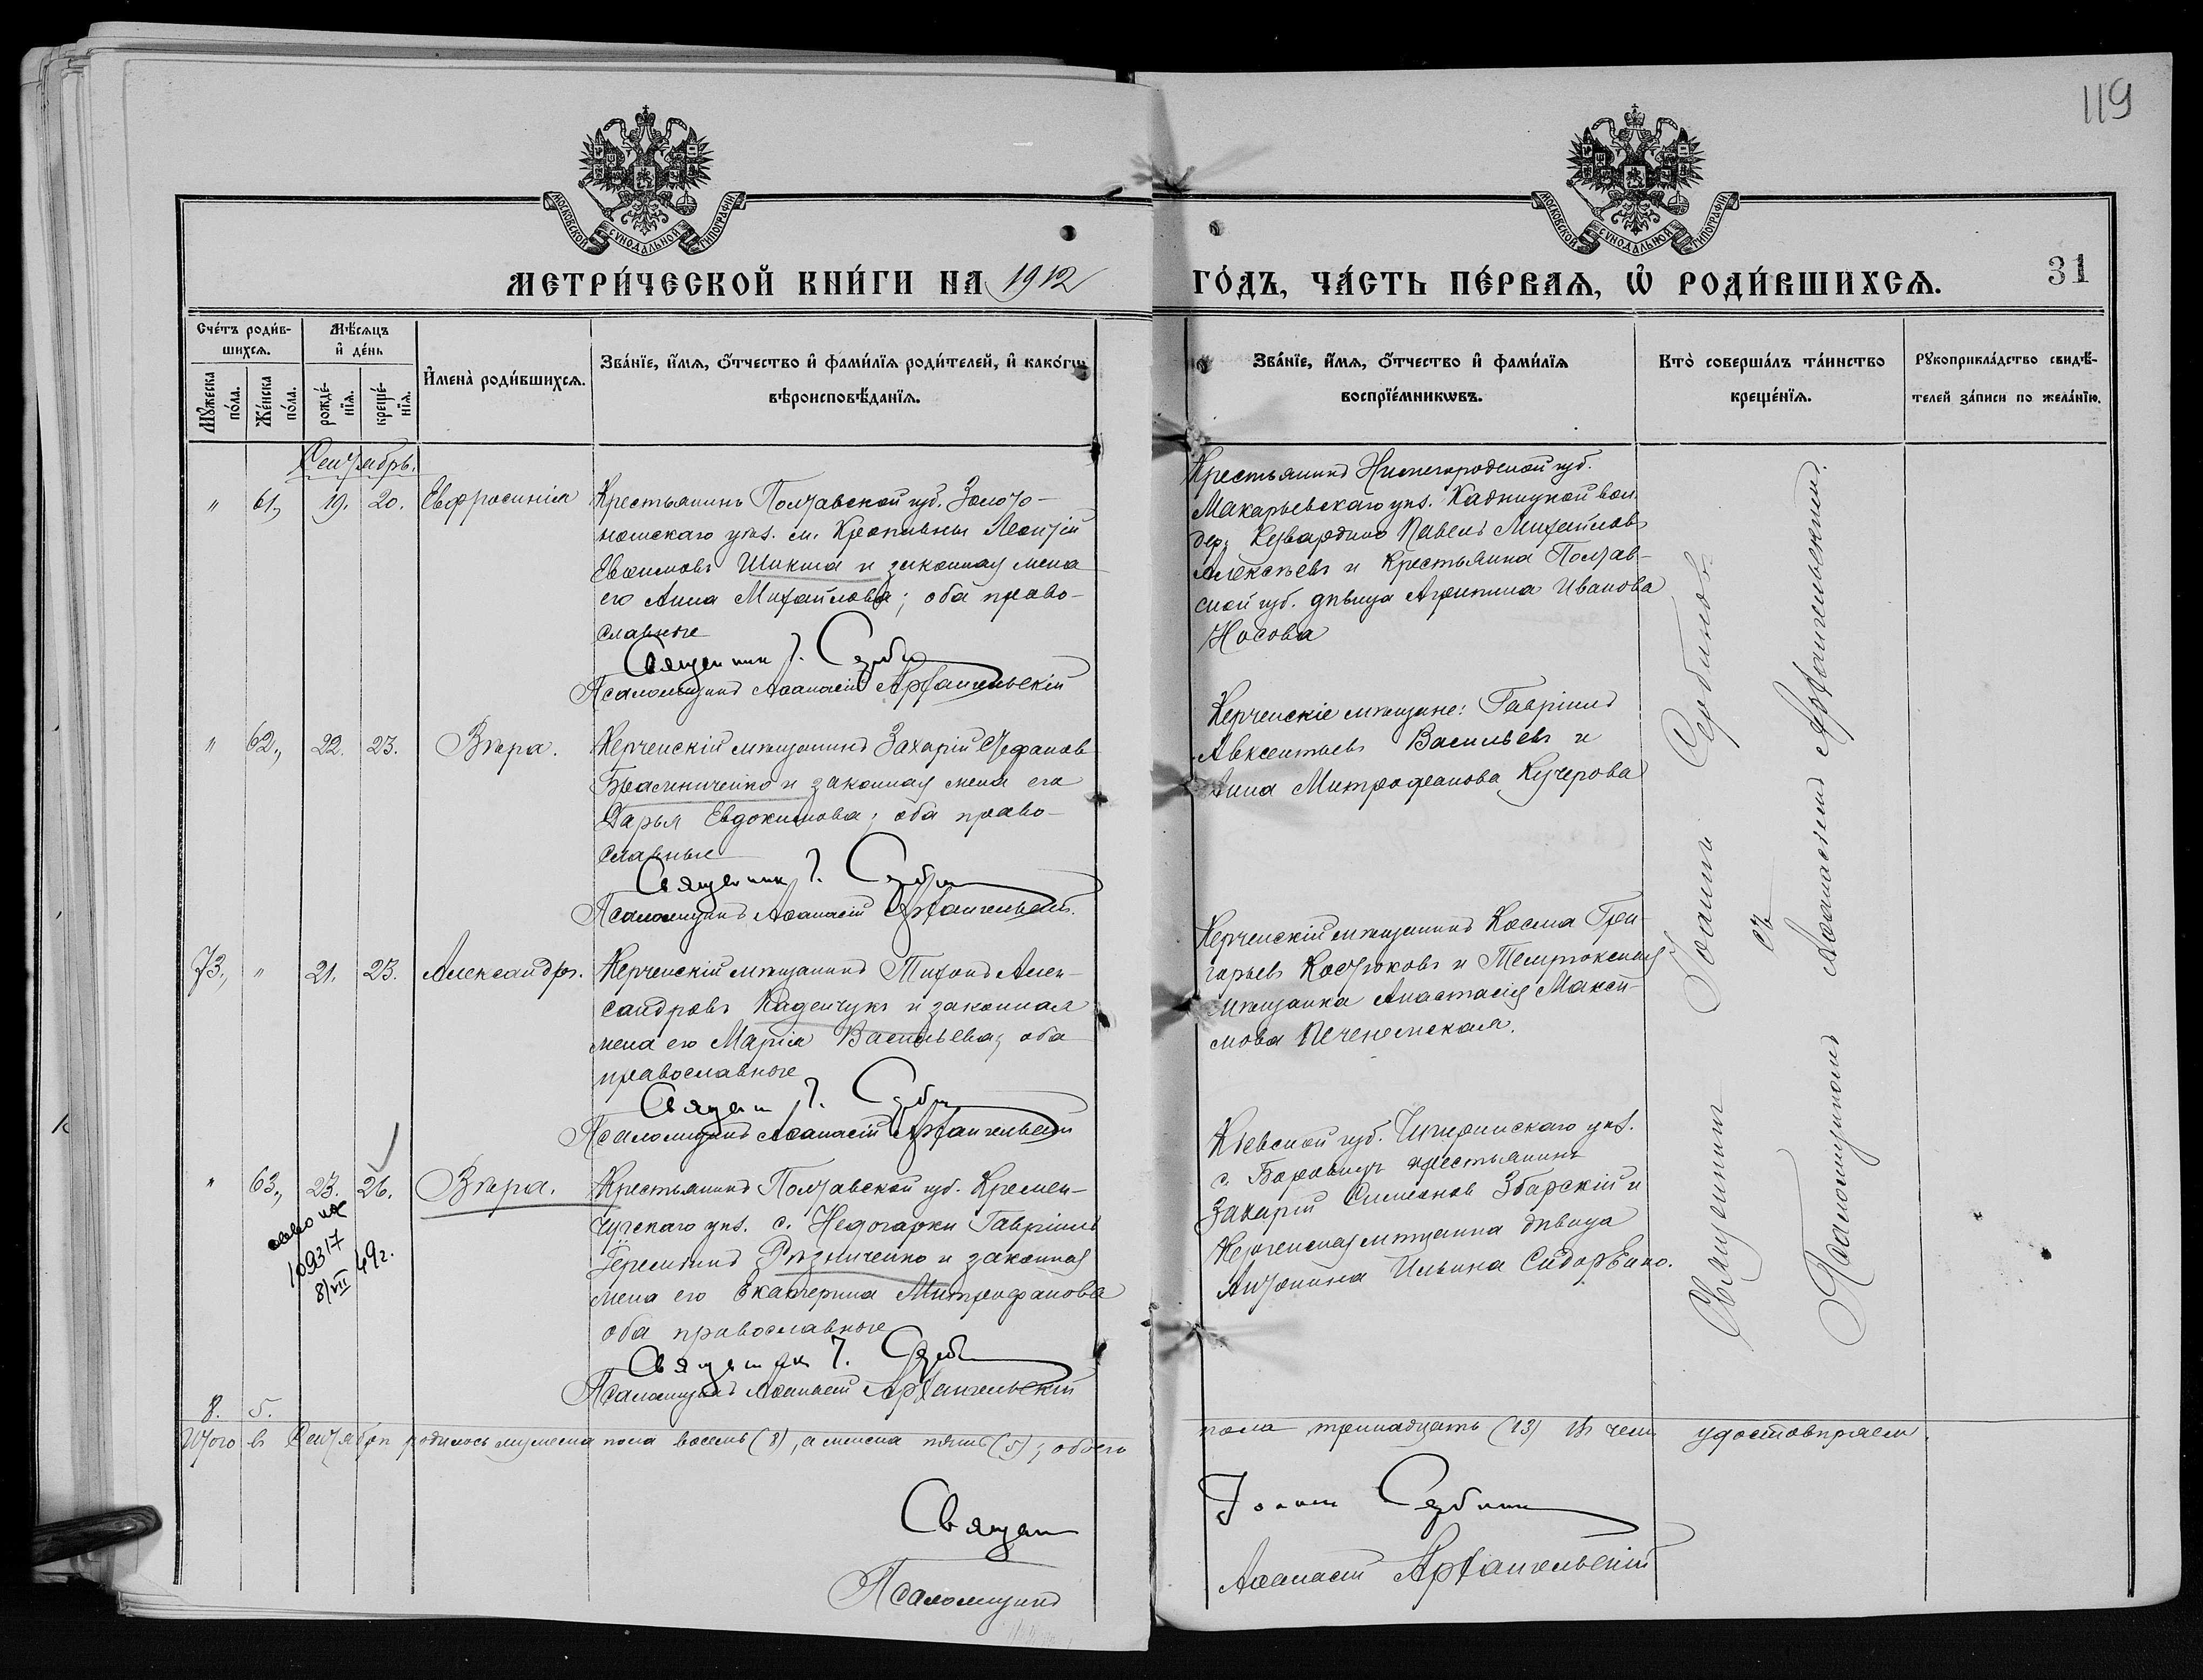 119
МОСКОВСКОЙ СѴНОДАЛЬНОЙ ТИПОГРАФІИ
МОСКОВСКОЙ СѴНОДАЛЬНОЙ ТИПОГРАФІИ
МЕТРИ́ЧЕСКОЙ КНИ́ГИ НА 1912 ГО́ДЪ, ЧА́СТЬ ПЕ́РВАѦ, Ѡ РОДИ́ВШИХСѦ.
31
Сче́тъ роди́в-
шихсѧ.
Мꙋ́жеска
по́ла.
Же́нска
по́ла.
Мѣ́сѧцъ
и҆ де́нь
рожде́-
нїѧ.
креще́-
нїѧ.
И҆мена̀ роди́вшихсѧ.
Зва́нїе, и҆́мѧ, ѻ҆́тчество и҆ фами́лїѧ роди́телей, и҆ како́гѡ
вѣроисповѣ́данїѧ.
Зва́нїе, и҆́мѧ, ѻ҆́тчество и҆ фами́лїѧ
воспрїе́мникѡвъ.
Кто̀ соверша́лъ та́инство
креще́нїѧ.
Рꙋкоприкла́дство свидѣ́-
телей за́писи по жела́нїю.
Сентябрь.
" 61, 19. 20. Евфросинія
Крестьянинъ Полтавской губ. Золото-
ношскаго уѣз. м. Кропивны Леонтій
Евѳимовъ Шикша и законная жена
его Анна Михайлова; оба право-
славные
Священник І. Сербин
Псаломщикъ Аѳанасій Архангельскій
Крестьянинъ Нижегородской губ.
Макарьевскаго уѣз. Кадницкой вол.
дер. Павелъ Михайловъ
Алексѣевъ и крестьянка Полтав-
ской губ. дѣвица Агрипина Иванова
Носова
" 62, 22. 23. Вѣра.
Керченскій мѣщанинъ Захарій Стефановъ
Бражниченко и законная жена его
Дарья Евдокимова; оба право-
славные
Священник І. Сербин
Псаломщикъ Аѳанасій Архангельскій.
Керченскіе мѣщане: Гавріилъ
Авксентьевъ Васильевъ и
Анна Митрофанова Кучерова
73, " 21. 23. Александръ.
Керченскій мѣщанинъ Тихонъ Алек-
сандровъ Каденчукъ и законная
жена его Марія Васильева; оба
православные
Священ І. Сербин
Псаломщикъ Аѳанасій Архангельскій
Керченскій мѣщанинъ Косма Гри-
горьевъ Костюковъ и Темрюкская
мѣщанка Анастасія Макси-
мова Печенежская.
" 63, 23. 26. Вѣра.
109317
8/VII 49г.
Крестьянинъ Полтавской губ. Кремен-
чугскаго уѣз. с. Недогарки Гавріилъ
Рѣзниченко и законная
жена его Екатерина Митрофанова
оба православные
Священник І. Сербин
Псаломщикъ Аѳанасій Архангельскій
Кіевской губ. Чигиринскаго уѣз.
с. Боровицъ крестьянинъ
Захарій Симеоновъ Збарскій и
Керченская мѣщанка дѣвица
Антонина Ильина Сидоренко.
Священникъ Іоаннъ Сербиновъ
съ
Псаломщикомъ Аѳанасіемъ Архангельскимъ.
8. 5.
Итого въ Сентябрѣ родилось мужеска пола восемь (8), а женска пять (5); обоего пола тринадцать (13) въ чемъ удостовѣряемъ.
Священ Іоанн Сербин
Псаломщикъ Аѳанасій Архангельскій